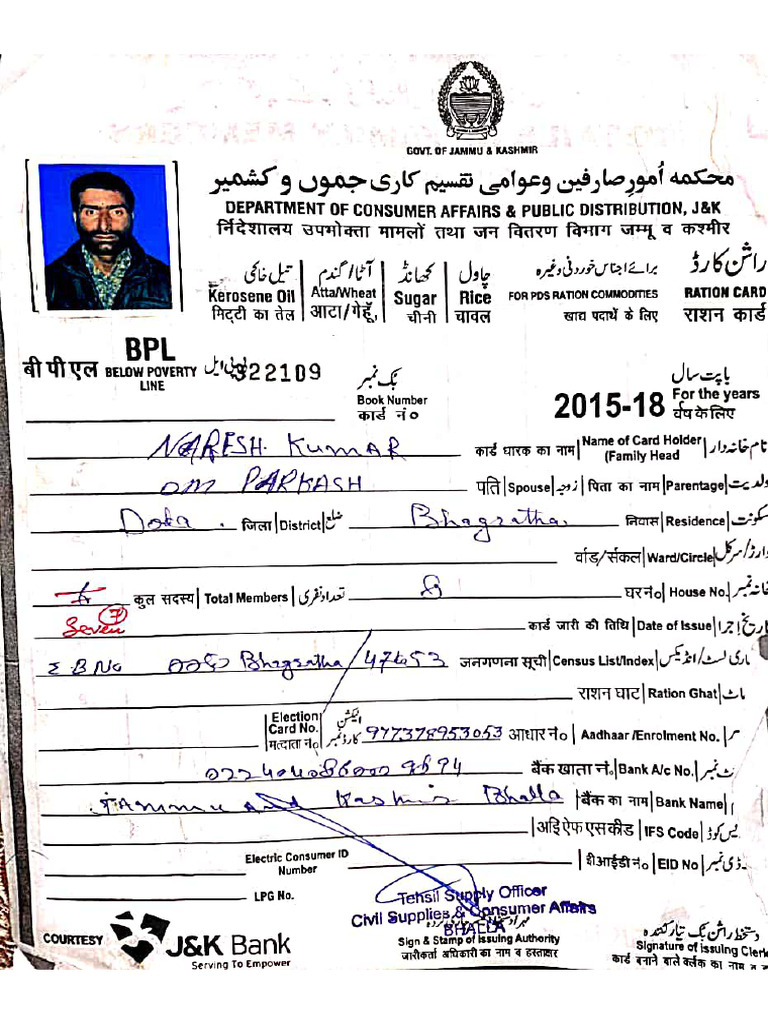 GOVT. OF JAMMU & KASHMIR
محکمہ اُمورِ صارفین و عوامی تقسیم کاری جموں و کشمیر
DEPARTMENT OF CONSUMER AFFAIRS & PUBLIC DISTRIBUTION, J&K
र्निदेशालय उपभोक्ता मामलों तथा जन वितरण विभाग जम्मू व कश्मीर
تیل خاکی آٹا/گندم کھانڈ چاول برائے اجناس خوردنی وغیرہ راشن کارڈ
Kerosene Oil Atta/Wheat Sugar Rice FOR PDS RATION COMMODITIES RATION CARD
मिट्टी का तेल आटा/गेहूँ, चीनी चावल खाद्य पदार्थे के लिए राशन कार्ड
बी पी एल BPL BELOW POVERTY LINE بی پی ایل 322109
بک نمبر Book Number कार्ड नं०
2015-18 بابت سال For the years र्वष के लिए
NARESH KUMAR कार्ड धारक का नाम Name of Card Holder (Family Head نام خانہ دار
OM PARKASH पति Spouse زوجہ पिता का नाम Parentage ولدیت
Doda. जिला District ضلع Bhagratha. निवास Residence سکونت
वार्ड/र्सकल Ward/Circle وارڈ/سرکل
कुल सदस्य Total Members تعداد نفری 8 घर नं० House No. خانہ نمبر
Seven 7 कार्ड जारी की तिथि Date of Issue تاریخ اجرا
Bhagratha/47to53 जनगणना सूची Census List/Index
राशन घाट Ration Ghat
Election Card No. मतदाता नं० الیکشن کارڈ نمبر 977378953053 आधार नं० Aadhaar/Enrolment No.
बैंक खाता नं. Bank A/c No.
Jammu and Kashmir Bhalla बैंक का नाम Bank Name
अइि एफ एस कोड IFS Code
Electric Consumer ID Number डी आई डी नं० EID No
LPG No.
Tehsil Supply Officer
Civil Supplies & Consumer Affairs
BHALLA
Sign & Stamp of Issuing Authority
जारीकर्ता अधिकारी का नाम व हस्ताक्षर
دستخط راشن بک تیار کنندہ
Signature of Issuing Clerk
कार्ड बनाने बाले र्क्लक का नाम व
COURTESY J&K Bank
Serving To Empower